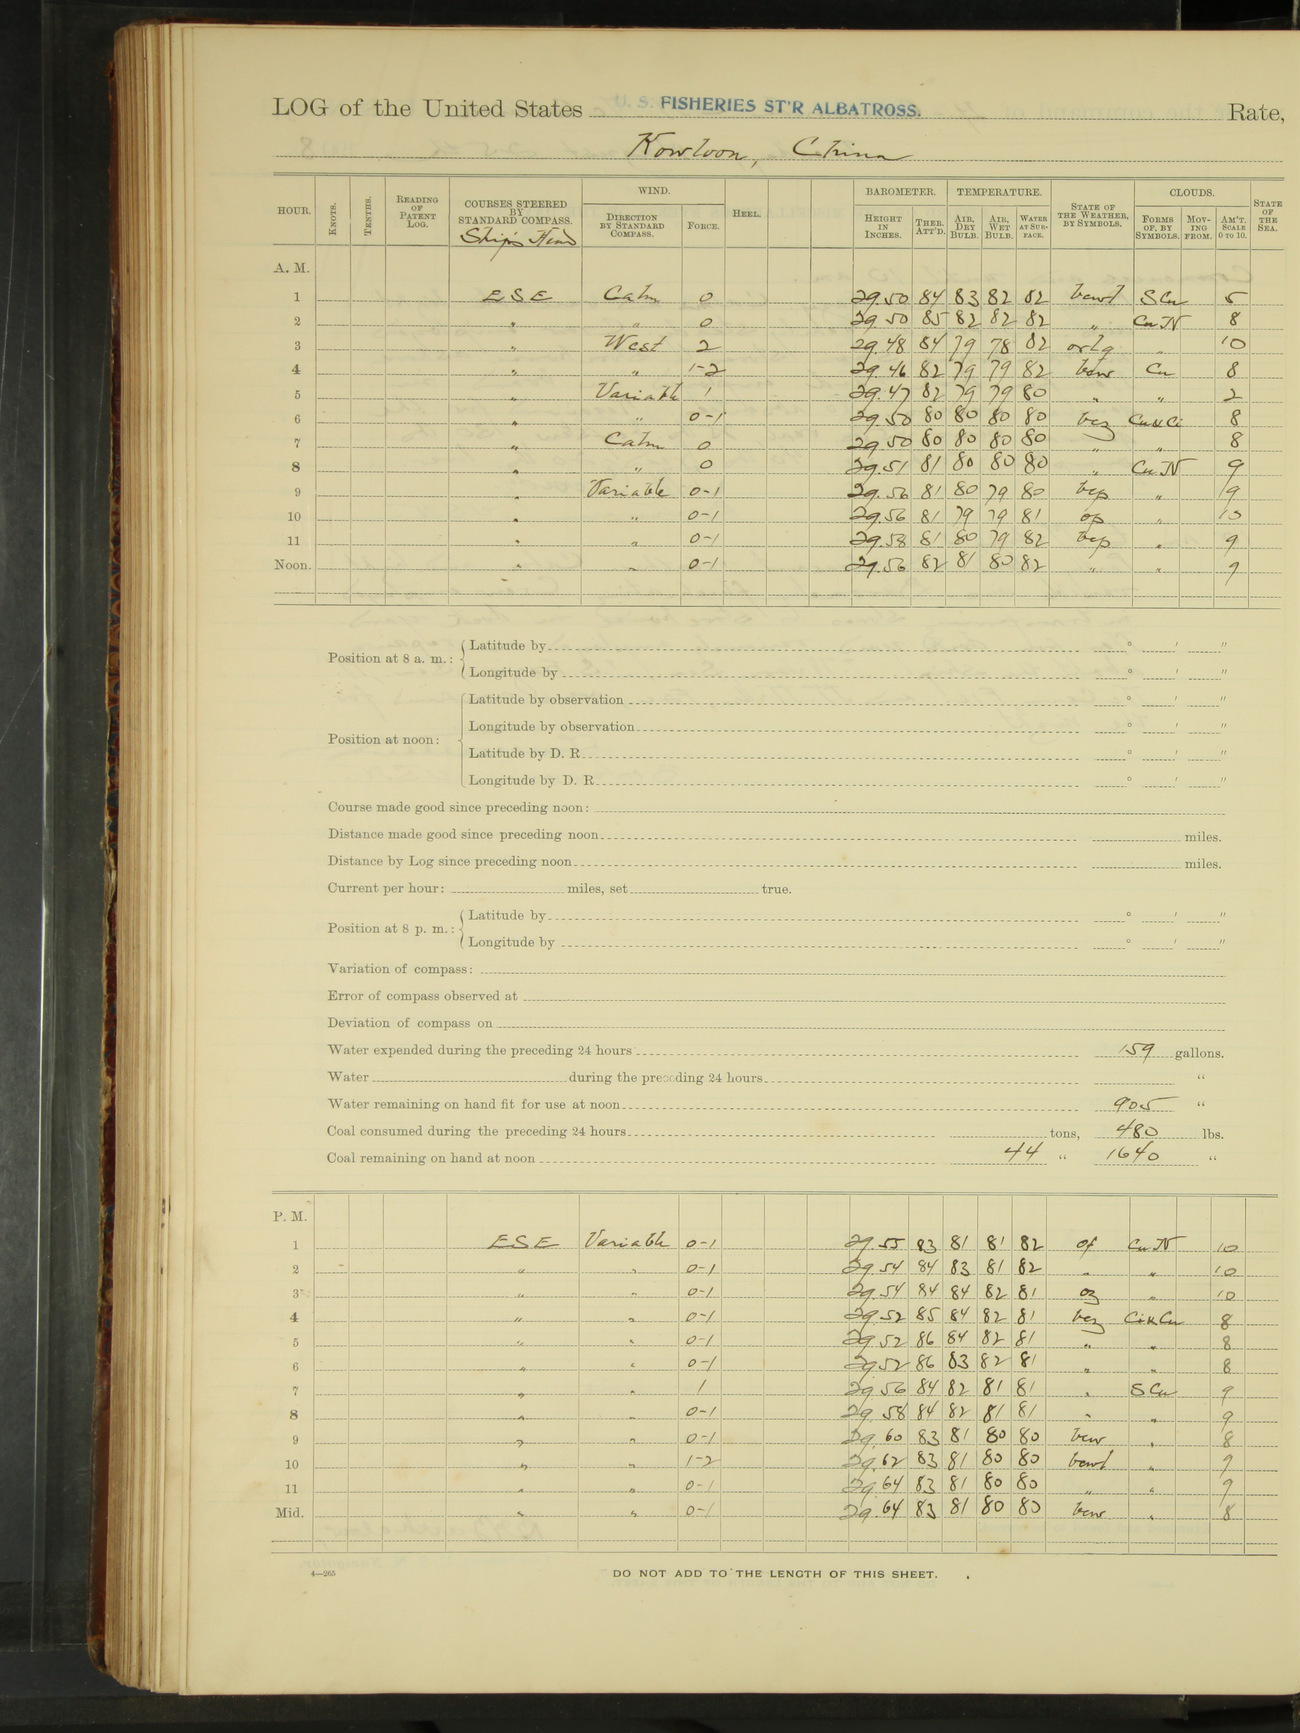 LOG of the United States U. S. FISHERIES ST'R ALBATROSS. Rate,
Kowloon, China
HOUR. KNOTS. TENTHS. READING OF PATENT LOG. COURSES STEERED BY STANDARD COMPASS. Ship's Head WIND. DIRECTION BY STANDARD COMPASS. FORCE. HEEL. BAROMETER. HEIGHT IN INCHES. THER. ATT'D. TEMPERATURE. AIR, DRY BULB. AIR, WET BULB. WATER AT SURFACE. STATE OF THE WEATHER, BY SYMBOLS. CLOUDS. FORMS OF, BY SYMBOLS. MOVING FROM. AM'T. SCALE 0 TO 10. STATE OF THE SEA.
A. M.
1 ESE Calm 0 29.50 84 83 82 82 bcwl S Cu 5
2 " " 0 29.50 85 82 82 82 " Cu N 8
3 " West 2 29.48 84 79 78 82 orlq " 10
4 " " 1-2 29.46 82 79 79 82 bcw Cu 8
5 " Variable 1 29.47 82 79 79 80 " " 2
6 " " 0-1 29.50 80 80 80 80 bcz Cu & Ci 8
7 " Calm 0 29.50 80 80 80 80 " " 8
8 " " 0 29.51 81 80 80 80 " Cu N 9
9 " Variable 0-1 29.56 81 80 79 80 bcp " 9
10 " " 0-1 29.56 81 79 79 81 op " 10
11 " " 0-1 29.58 81 80 79 82 bcp " 9
Noon. " " 0-1 29.56 82 81 80 82 " " 9
Position at 8 a. m.: Latitude by ° ' "
Longitude by ° ' "
Position at noon: Latitude by observation ° ' "
Longitude by observation ° ' "
Latitude by D. R. ° ' "
Longitude by D. R. ° ' "
Course made good since preceding noon:
Distance made good since preceding noon miles.
Distance by Log since preceding noon miles.
Current per hour: miles, set true.
Position at 8 p. m.: Latitude by ° ' "
Longitude by ° ' "
Variation of compass:
Error of compass observed at
Deviation of compass on
Water expended during the preceding 24 hours 159 gallons.
Water during the preceding 24 hours "
Water remaining on hand fit for use at noon 905 "
Coal consumed during the preceding 24 hours tons, 480 lbs.
Coal remaining on hand at noon 44 " 1640 "
P. M.
1 ESE Variable 0-1 29.55 83 81 81 82 of Cu N 10
2 " " 0-1 29.54 84 83 81 82 " " 10
3 " " 0-1 29.54 84 84 82 81 oz " 10
4 " " 0-1 29.52 85 84 82 81 bcz Ci & Cu 8
5 " " 0-1 29.52 86 84 82 81 " " 8
6 " " 0-1 29.52 86 83 82 81 " " 8
7 " " 1 29.56 84 82 81 81 " S Cu 9
8 " " 0-1 29.58 84 82 81 81 " " 9
9 " " 0-1 29.60 83 81 80 80 bcw " 8
10 " " 1-2 29.62 83 81 80 80 bcwl " 9
11 " " 0-1 29.64 83 81 80 80 " " 9
Mid. " " 0-1 29.64 83 81 80 80 bcw " 8
4—265
DO NOT ADD TO THE LENGTH OF THIS SHEET.